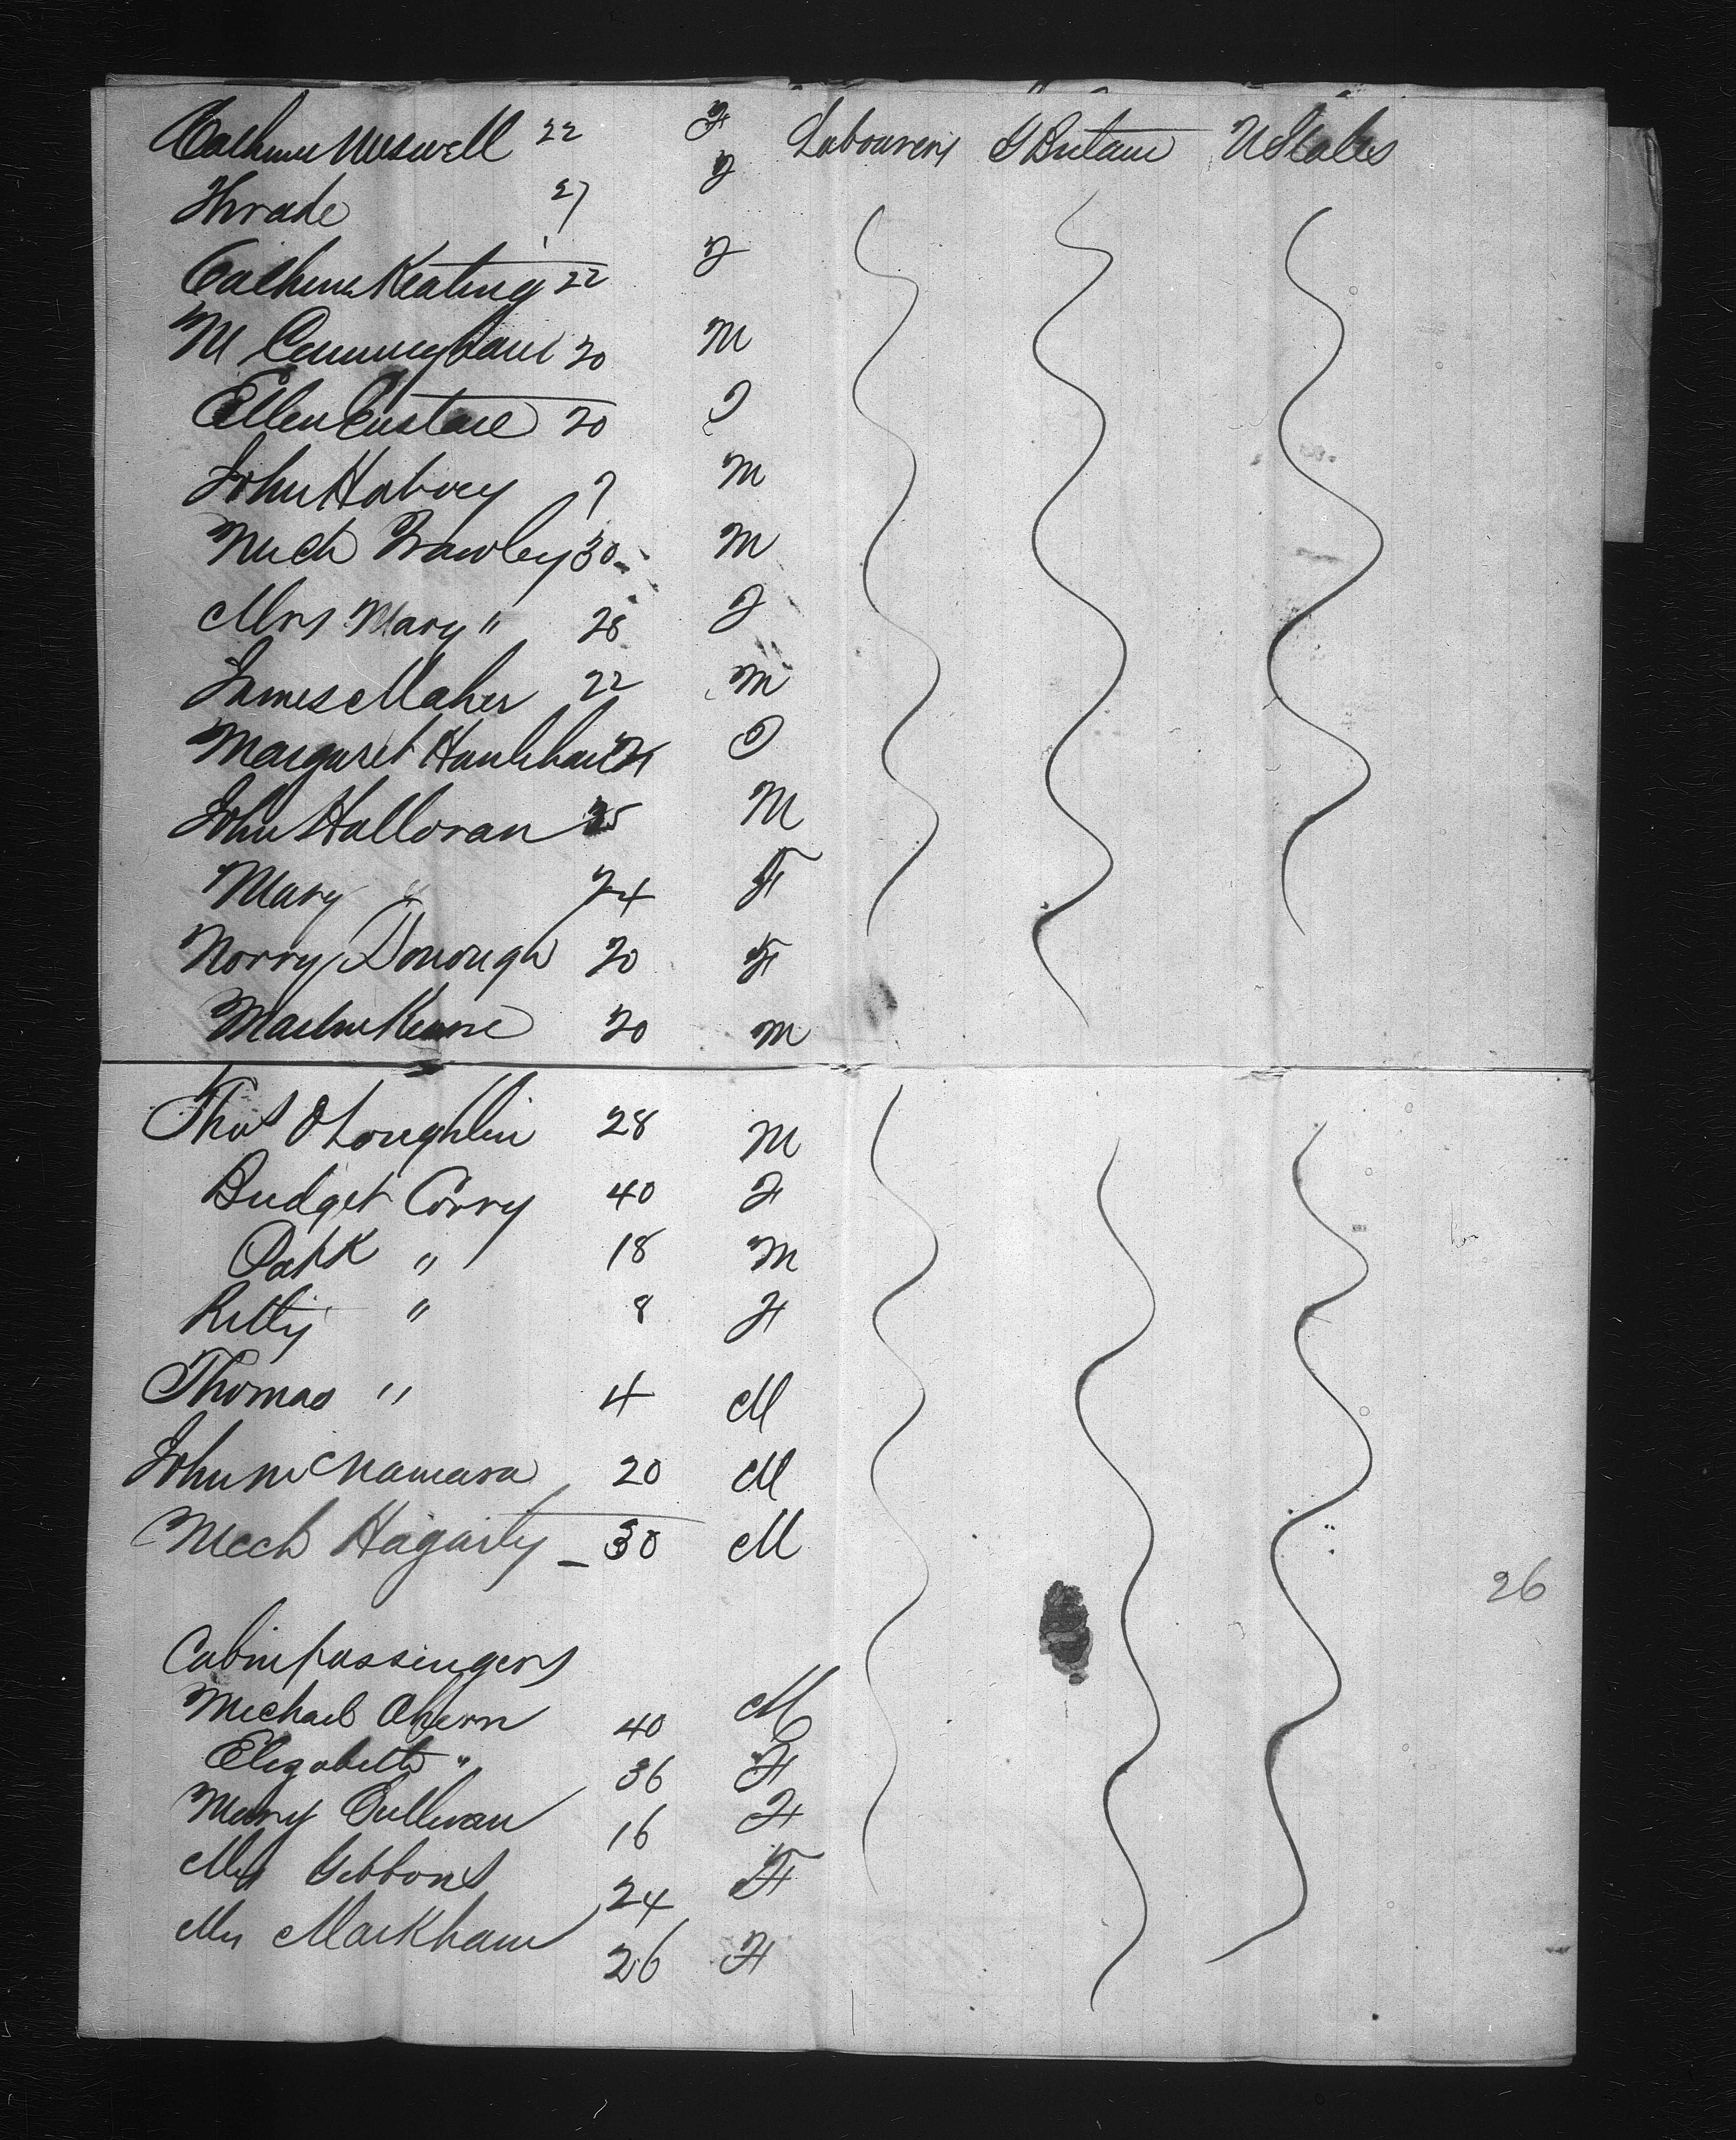 22 F Labourers G Britain U States
27 F
Keating 22 F
M Cunningham 20 M
Ellen Eustace 20 F
John 7 M
Mich Frawley 30 M
Mrs Mary " 28 F
James Maher 22 M
Margaret F
John Halloran 25 M
Mary " 24 F
Norry Donough 20 F
20 M
Thos O Loughlin 28 M
Bridget Corry 40 F
Patk " 18 M
Kitty " 8 F
Thomas " 4 M
John McNamara 20 M
Mich Hagarty 30 M
26
Cabin passengers
Michael Ahern 40 M
Elizabeth " 36 F
Mary Sullivan 16 F
Mrs Gibbons 24 F
Mrs Markham 26 F